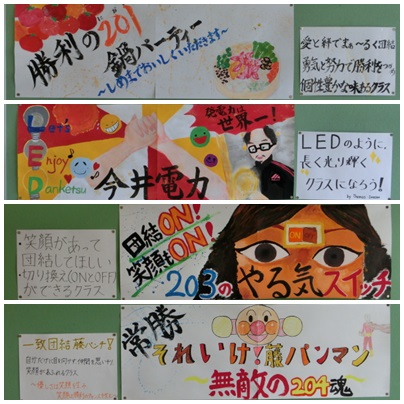 勝利の201
鍋パーティー
〜しめまでおいしくいただきます〜
愛と絆でまぁ〜るく団結
勇気と努力で勝利をつかむ
個性豊かな味わるクラス
Let's
Enjoy
Danketsu
今井電力
電力は
世界一!
LEDのように、
長く光り輝く
クラスになろう!
笑顔があって
団結してほしい
切り換え(ONとOFF)
ができるクラス
団結ON!
笑顔もON!
ON
203のやる気スイッチ
一致団結藤パンチ!
常勝
それいけ!藤パンマン
〜無敵の204魂〜